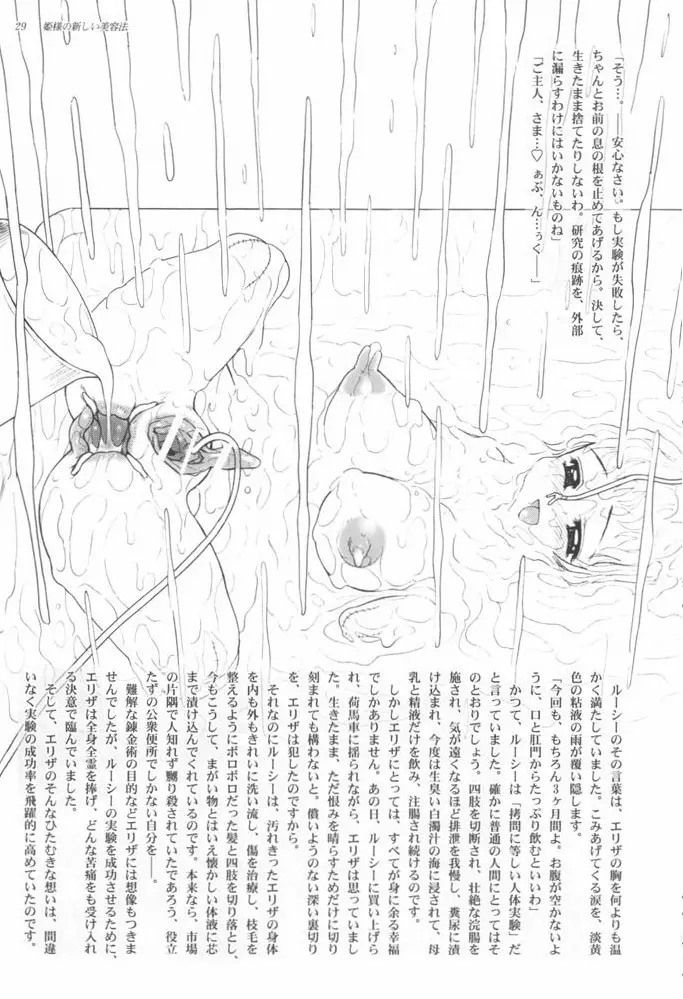 29　姫様の新しい美容法
「そう…。――安心なさい。もし実験が失敗したら、
ちゃんとお前の息の根を止めてあげるから。決して、
生きたまま捨てたりしないわ。研究の痕跡を、外部
に漏らすわけにはいかないものね」
「ご主人、さま…♡　ぁぶ、ん…ぅく――」
ルーシーのその言葉は、エリザの胸を何よりも温
かく満たしていました。こみあげてくる涙を、淡黄
色の粘液の雨が覆い隠します。
「今回も、もちろん3ヶ月間よ。お腹が空かないよ
うに、口と肛門からたっぷり飲むといいわ」
かつて、ルーシーは「拷問に等しい人体実験」だ
と言っていました。確かに普通の人間にとってはそ
のとおりでしょう。四肢を切断され、壮絶な浣腸を
施され、気が遠くなるほど排泄を我慢し、糞尿に漬
け込まれ、今度は生臭い白濁汁の海に浸されて、母
乳と精液だけを飲み、注腸され続けるのです。
しかしエリザにとっては、すべてが身に余る幸福
でしかありません。あの日、ルーシーに買い上げら
れ、荷馬車に揺られながら、エリザは思っていまし
た。生きたまま、ただ恨みを晴らすためだけに切り
刻まれても構わないと。償いようのない深い裏切り
を、エリザは犯したのですから。
それなのにルーシーは、汚れきったエリザの身体
を内も外もきれいに洗い流し、傷を治療し、枝毛を
整えるようにボロボロだった髪と四肢を切り落とし、
今もこうして、まがい物とはいえ懐かしい体液に芯
まで漬け込んでくれているのです。本来なら、市場
の片隅で人知れず嬲り殺されていたであろう、役立
たずの公衆便所でしかない自分を――。
難解な錬金術の目的などエリザには想像もつきま
せんでしたが、ルーシーの実験を成功させるために、
エリザは全身全霊を捧げ、どんな苦痛をも受け入れ
る決意で臨んでいました。
そして、エリザのそんなひたむきな想いは、間違
いなく実験の成功率を飛躍的に高めていたのです。